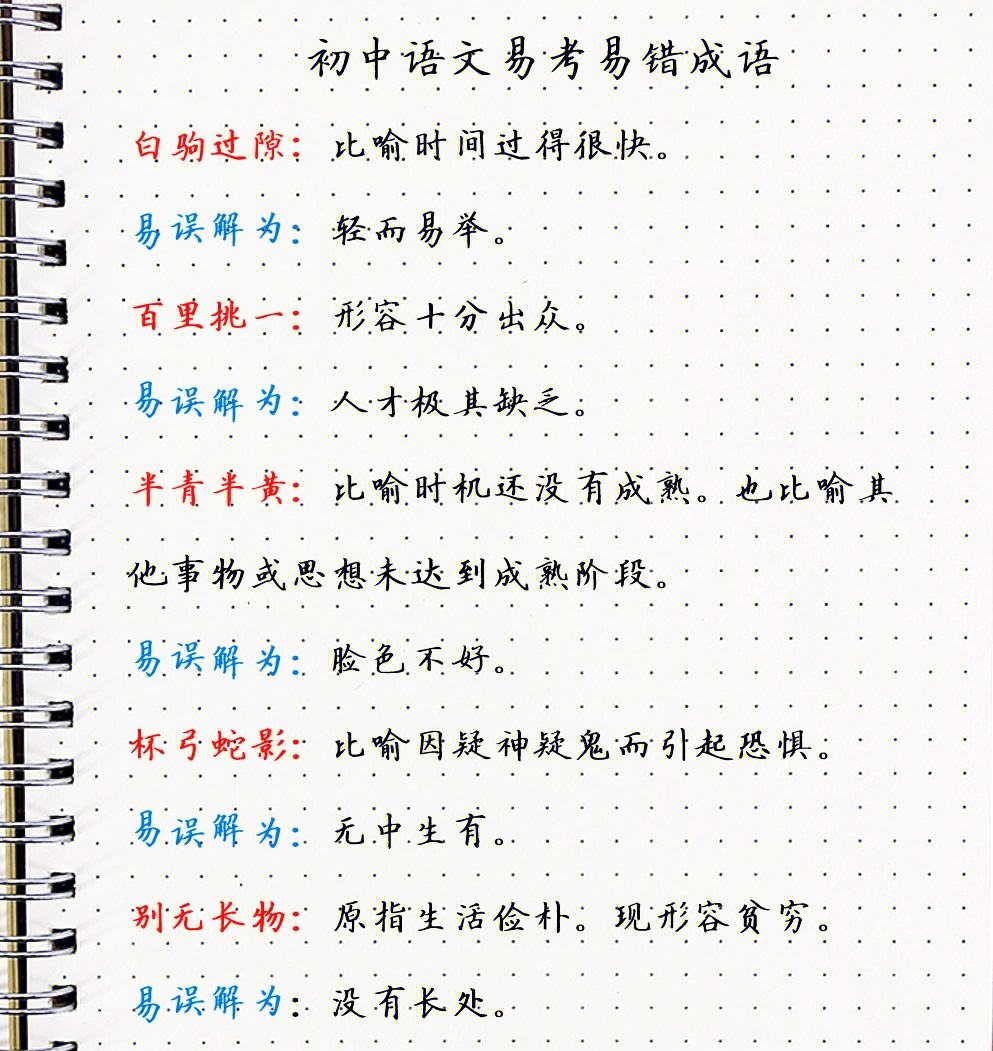 初中语文易考易错成语
白驹过隙：比喻时间过得很快。
易误解为：轻而易举。
百里挑一：形容十分出众。
易误解为：人才极其缺乏。
半青半黄：比喻时机还没有成熟。也比喻其
他事物或思想未达到成熟阶段。
易误解为：脸色不好。
杯弓蛇影：比喻因疑神疑鬼而引起恐惧。
易误解为：无中生有。
别无长物：原指生活俭朴。现形容贫穷。
易误解为：没有长处。